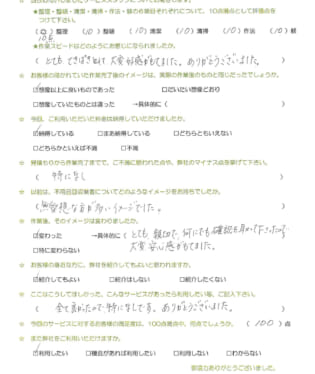 ★ 整理・整頓・清潔・清掃・作法・躾の作業日それぞれについて、10点満点として評価点を
つけて下さい。
(10)整理 (10)整頓 (10)清潔 (10)清掃 (10)作法 (10)躾
★作業スピードはどのようにお感じになられましたか。
★ お客様の描かれていた作業完了後のイメージは、実際の作業後のものと同じだったでしょうか。
☑想像以上に良いものであった □だいたい想像どおり
□想像していたものとは違った →具体的に( )
★ 今回、ご利用いただいた料金は納得していただけましたか。
☑納得している □まあ納得している □どちらともいえない
□どちらかといえば不満 □不満
★ 見積もりから作業完了までで、ご不満に思われた点や、弊社のマイナス点を挙げて下さい。
( 特になし )
★ 以前は、不用品回収業者についてどのようなイメージをお持ちでしたか。
★ 作業後、そのイメージは変わりましたか。
☑変わった →具体的に( とても親切で、何にでも確認を
□特に変わらない
★ お客様の身近な方に、弊社を紹介してもよいと思われますか。
☑紹介してもよい □紹介はしない □紹介したくない
★ ここはこうしてほしかった、こんなサービスがあったら利用したい等、ご記入下さい。
( 全て良かったので特になしです。ありがとうございました。 )
★ 今回のサービスに対するお客様の満足度は、100点満点中、何点でしょうか。 (100)点
★ また弊社をご利用いただけますか。
☑利用したい □機会があれば利用したい □利用しない □わからない
御協力ありがとうございました。